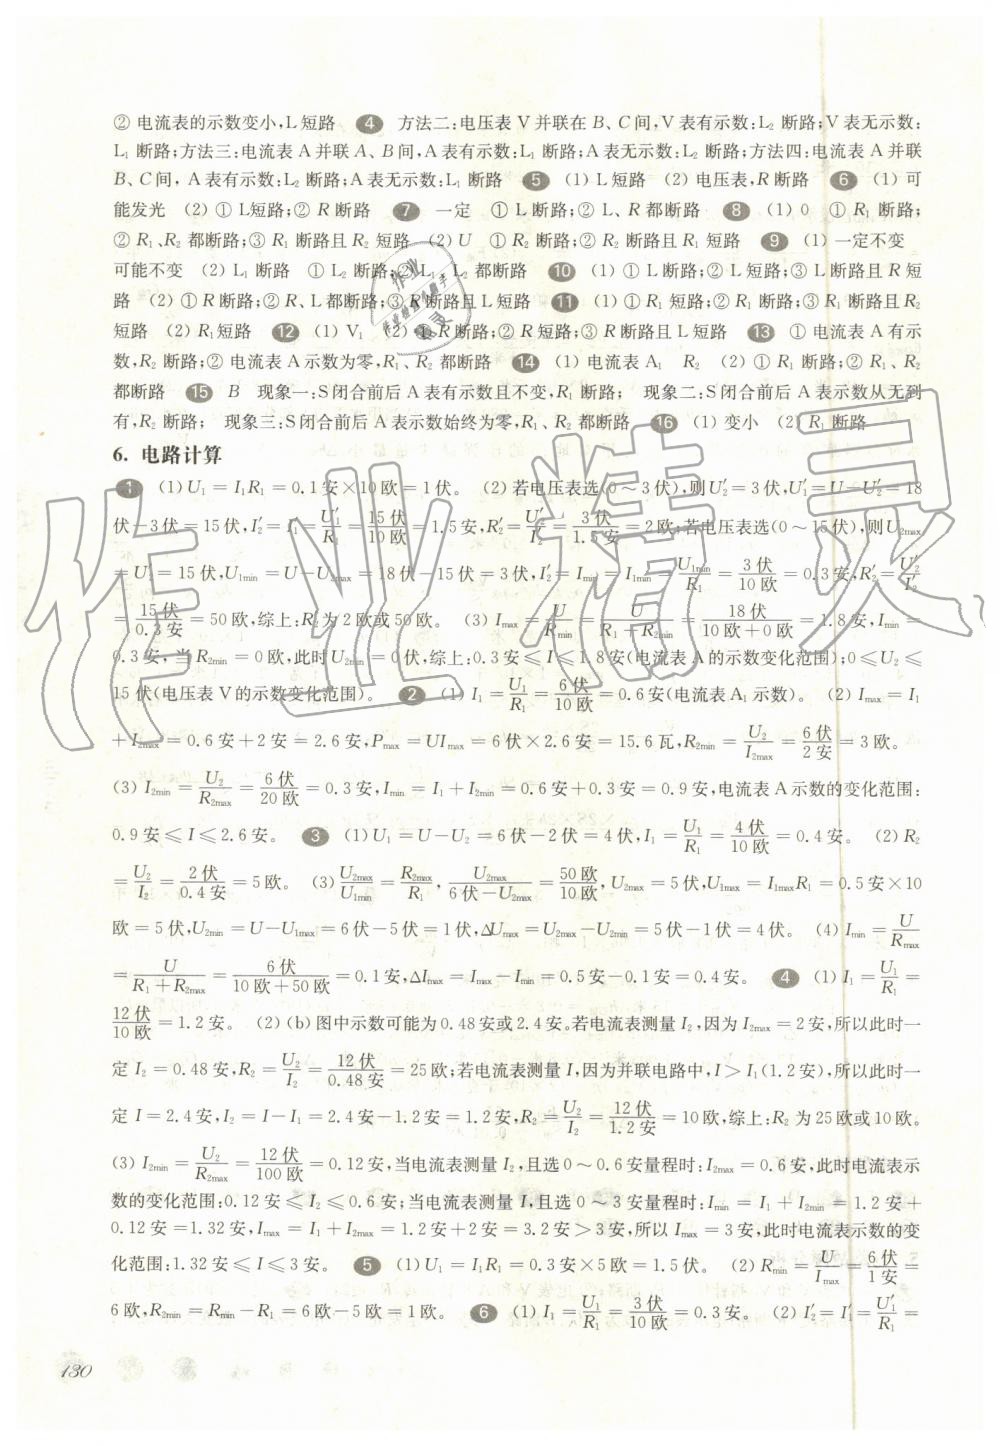 ② 电流表的示数变小,L 短路 4 方法二:电压表 V 并联在 B、C间,V 表有示数:L₂ 断路;V 表无示数:
L₁ 断路;方法三:电流表 A 并联 A、B 间,A 表有示数:L₁ 断路;A 表无示数:L₂ 断路;方法四:电流表 A 并联
B、C间, A 表有示数:L₂ 断路;A 表无示数:L₁ 断路 5 (1) L短路 (2) 电压表,R断路 6 (1) 可
能发光 (2) ① L短路;② R 断路 7 一定 ① L 断路;② L、R 都断路 8 (1) 0 ① R₁ 断路;
② R₁、R₂ 都断路;③ R₁ 断路且 R₂ 短路 (2) U ① R₂ 断路;② R₂ 断路且 R₁ 短路 9 (1) 一定不变
可能不变 (2) L₁ 断路 ① L₂ 断路;② L₁、L₂ 都断路 10 (1) ① L断路;② L短路;③ L断路且 R 短
路 (2) ① R断路;② R、L 都断路;③ R断路且 L 短路 11 (1) ① R₁ 短路;② R₂ 断路;③ R₁断路且 R₂
短路 (2) R₁短路 12 (1) V₁ (2) ① R断路;② R 短路;③ R断路且 L 短路 13 ① 电流表 A 有示
数,R₂ 断路;② 电流表 A 示数为零,R₁、R₂ 都断路 14 (1) 电流表 A₁ R₂ (2) ① R₁ 断路;② R₁、R₂
都断路 15 B 现象一:S闭合前后 A 表有示数且不变,R₁断路; 现象二:S闭合前后 A 表示数从无到
有,R₂ 断路; 现象三:S闭合前后 A 表示数始终为零,R₁、R₂ 都断路 16 (1) 变小 (2) R₁断路
6. 电路计算
1 (1) U₁=I₁R₁=0.1安×10欧=1伏。 (2) 若电压表选(0～3伏),则U₂′=3伏,U₁′=U−U₂′=18
伏−3伏=15伏,I₂′=I₁′=U₁′/R₁=15伏/10欧=1.5安,R₂′=U₂′/I₂′=3伏/1.5安=2欧;若电压表选(0～15伏),则U₂max
=U₂′=15伏,U₁min=U−U₂max=18伏−15伏=3伏,I₂′=Imin=I₁min=U₁min/R₁=3伏/10欧=0.3安,R₂′=U₂′/I₂′
=15伏/0.3安=50欧,综上:R₂为2欧或50欧。 (3) Imax=U/Rmin=U/(R₁+R₂min)=18伏/(10欧+0欧)=1.8安,Imin=
0.3安,当R₂min=0欧,此时U₂min=0伏,综上:0.3安≤I≤1.8安(电流表A的示数变化范围);0≤U₂≤
15伏(电压表V的示数变化范围)。 2 (1) I₁=U₁/R₁=6伏/10欧=0.6安(电流表A₁示数)。 (2) Imax=I₁
+I₂max=0.6安+2安=2.6安,Pmax=UImax=6伏×2.6安=15.6瓦,R₂min=U₂/I₂max=6伏/2安=3欧。
(3) I₂min=U₂/R₂max=6伏/20欧=0.3安,Imin=I₁+I₂min=0.6安+0.3安=0.9安,电流表A示数的变化范围:
0.9安≤I≤2.6安。 3 (1) U₁=U−U₂=6伏−2伏=4伏,I₁=U₁/R₁=4伏/10欧=0.4安。 (2) R₂
=U₂/I₂=2伏/0.4安=5欧。 (3) U₂max/U₁min=R₂max/R₁,U₂max/(6伏−U₂max)=50欧/10欧,U₂max=5伏,U₁max=I₁maxR₁=0.5安×10
欧=5伏,U₂min=U−U₁max=6伏−5伏=1伏,ΔUmax=U₂max−U₂min=5伏−1伏=4伏。 (4) Imin=U/Rmax
=U/(R₁+R₂max)=6伏/(10欧+50欧)=0.1安,ΔImax=Imax−Imin=0.5安−0.1安=0.4安。 4 (1) I₁=U₁/R₁=
12伏/10欧=1.2安。 (2) (b) 图中示数可能为0.48安或2.4安。若电流表测量I₂,因为I₂max=2安,所以此时一
定I₂=0.48安,R₂=U₂/I₂=12伏/0.48安=25欧;若电流表测量I,因为并联电路中,I>I₁(1.2安),所以此时一
定I=2.4安,I₂=I−I₁=2.4安−1.2安=1.2安,R₂=U₂/I₂=12伏/1.2安=10欧,综上:R₂为25欧或10欧。
(3) I₂min=U₂/R₂max=12伏/100欧=0.12安,当电流表测量I₂,且选0～0.6安量程时:I₂max=0.6安,此时电流表示
数的变化范围:0.12安≤I₂≤0.6安;当电流表测量I,且选0～3安量程时:Imin=I₁+I₂min=1.2安+
0.12安=1.32安,Imax=I₁+I₂max=1.2安+2安=3.2安>3安,所以Imax=3安,此时电流表示数的变
化范围:1.32安≤I≤3安。 5 (1) U₁=I₁R₁=0.3安×5欧=1.5伏。 (2) Rmin=U/Imax=6伏/1安=
6欧,R₂min=Rmin−R₁=6欧−5欧=1欧。 6 (1) I₁=U₁/R₁=3伏/10欧=0.3安。 (2) I₂′=I₁′=U₁′/R₁=
130
作业精灵